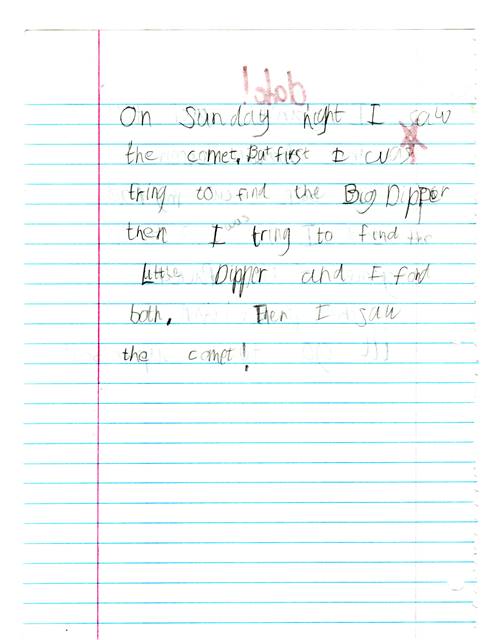 On Sunday night I saw
the comet. But first I was
tring to find the Big Dipper
then I was tring to find the
Little Dipper and I fond
both. Then I saw
the comet!